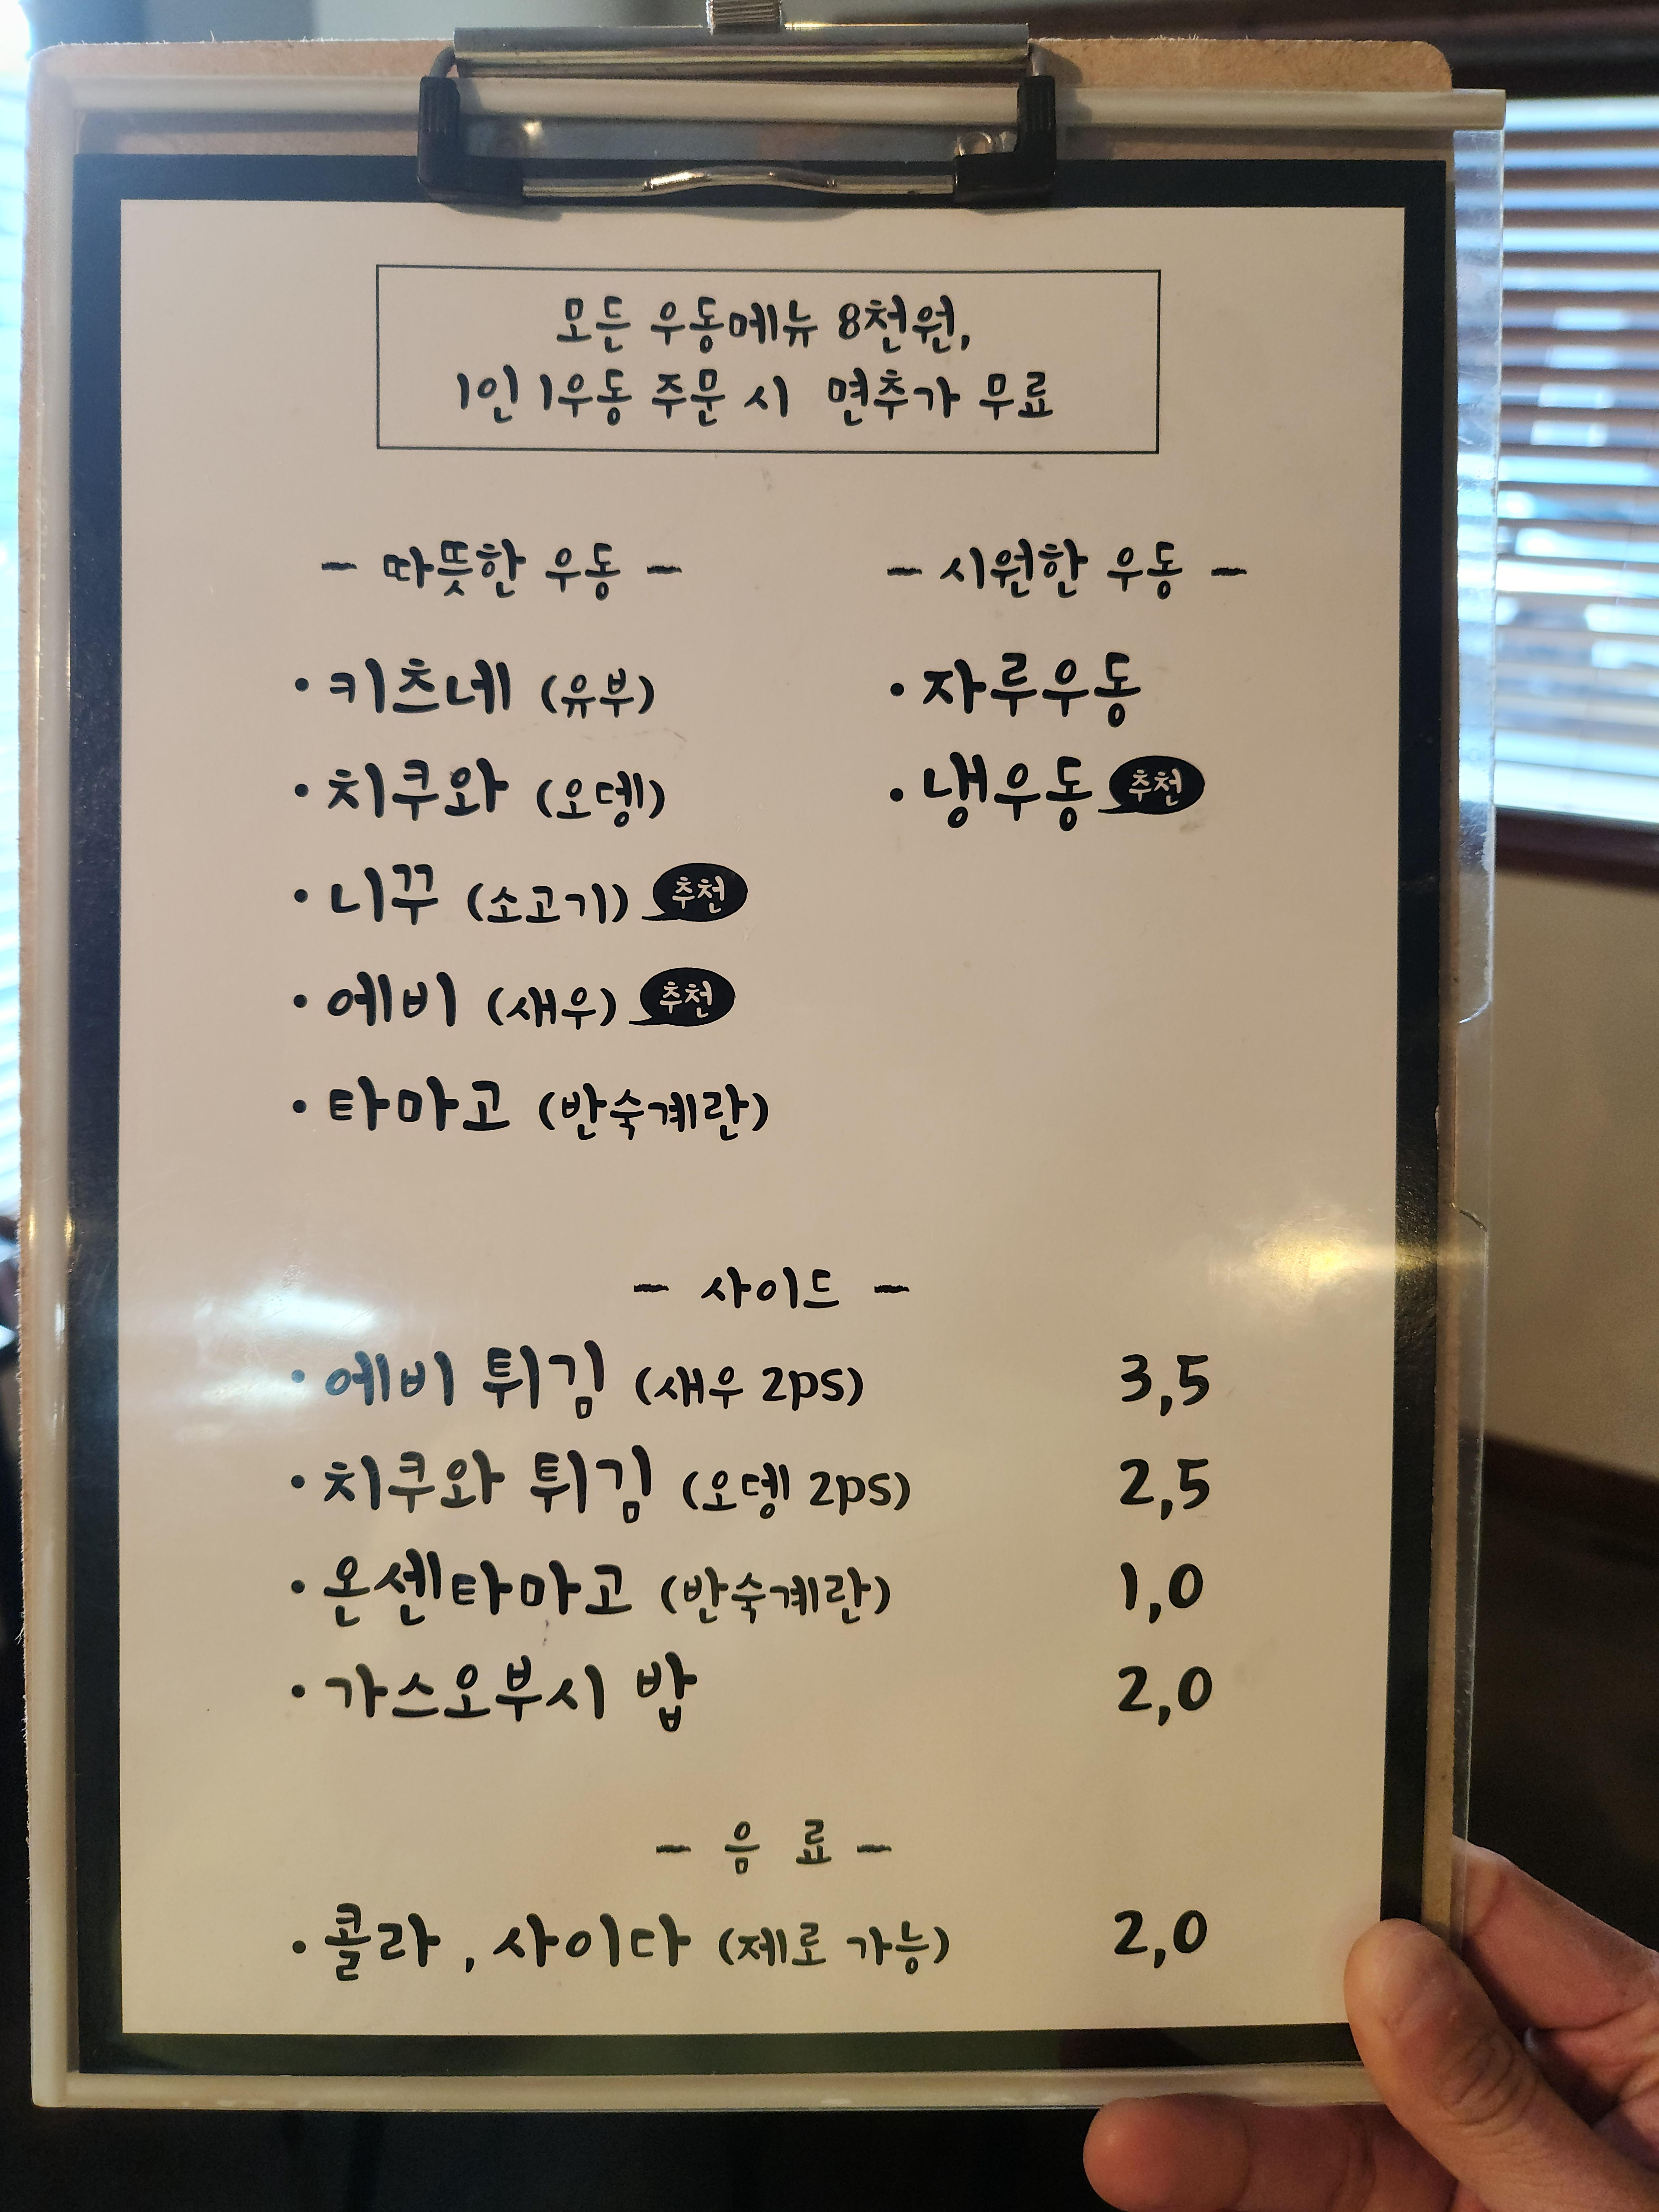 모든 우동메뉴 8천원,
1인 1우동 주문 시 면추가 무료
- 따뜻한 우동 -
• 키츠네 (유부)
• 치쿠와 (오뎅)
• 니꾸 (소고기) 추천
• 에비 (새우) 추천
• 타마고 (반숙계란)
- 시원한 우동 -
• 자루우동
• 냉우동 추천
- 사이드 -
• 에비 튀김 (새우 2ps) 3,5
• 치쿠와 튀김 (오뎅 2ps) 2,5
• 온센타마고 (반숙계란) 1,0
• 가스오부시 밥 2,0
- 음 료 -
• 콜라 , 사이다 (제로 가능) 2,0